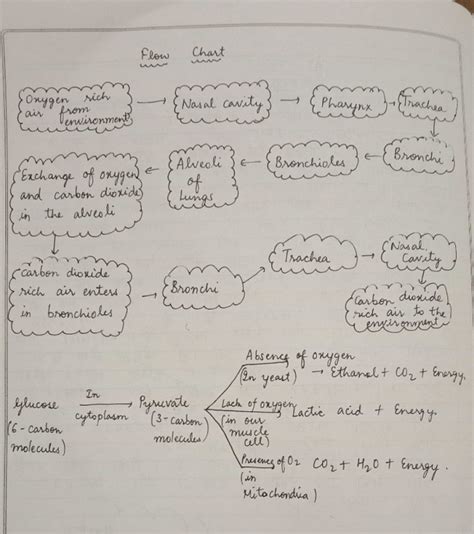 Flow Chart
Oxygen rich
air from
environment
Nasal cavity
Pharynx
Trachea
Bronchi
Bronchioles
Alveoli
of
Lungs
Exchange of oxygen
and carbon dioxide
in the alveoli
Carbon dioxide
rich air enters
in bronchioles
Bronchi
Trachea
Nasal
Cavity
Carbon dioxide
rich air to the
environment
Glucose
(6-carbon
molecules)
In
cytoplasm
Pyruvate
(3-carbon
molecules)
Absence of oxygen
(In yeast)
Ethanol + CO2 + Energy.
Lack of oxygen
(in our
muscle
cell)
Lactic acid + Energy.
Presence of O2
(in
Mitochondria)
CO2 + H2O + Energy.